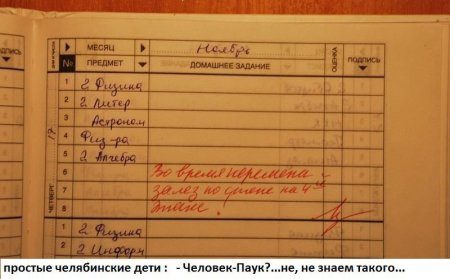 МЕСЯЦ Ноябрь
№ ПРЕДМЕТ ДОМАШНЕЕ ЗАДАНИЕ ОЦЕНКА ПОДПИСЬ
ПОДПИСЬ
17
ЧЕТВЕРГ
1 2. Физика
2 2. Литер
3 Астроном
4 Физ-ра
5 2. Алгебра
6 Во время перемены
7 залез по стене на 4ый
8 этаж.
1 2. Физика
2 2. Информ
простые челябинские дети : - Человек-Паук?...не, не знаем такого...